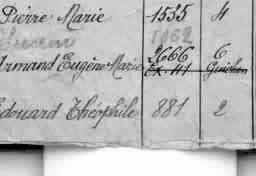 Pierre Marie 1535 4
1062
Armand Eugène Marie 2666 6
Ex 111
Edouard Théophile 881 2